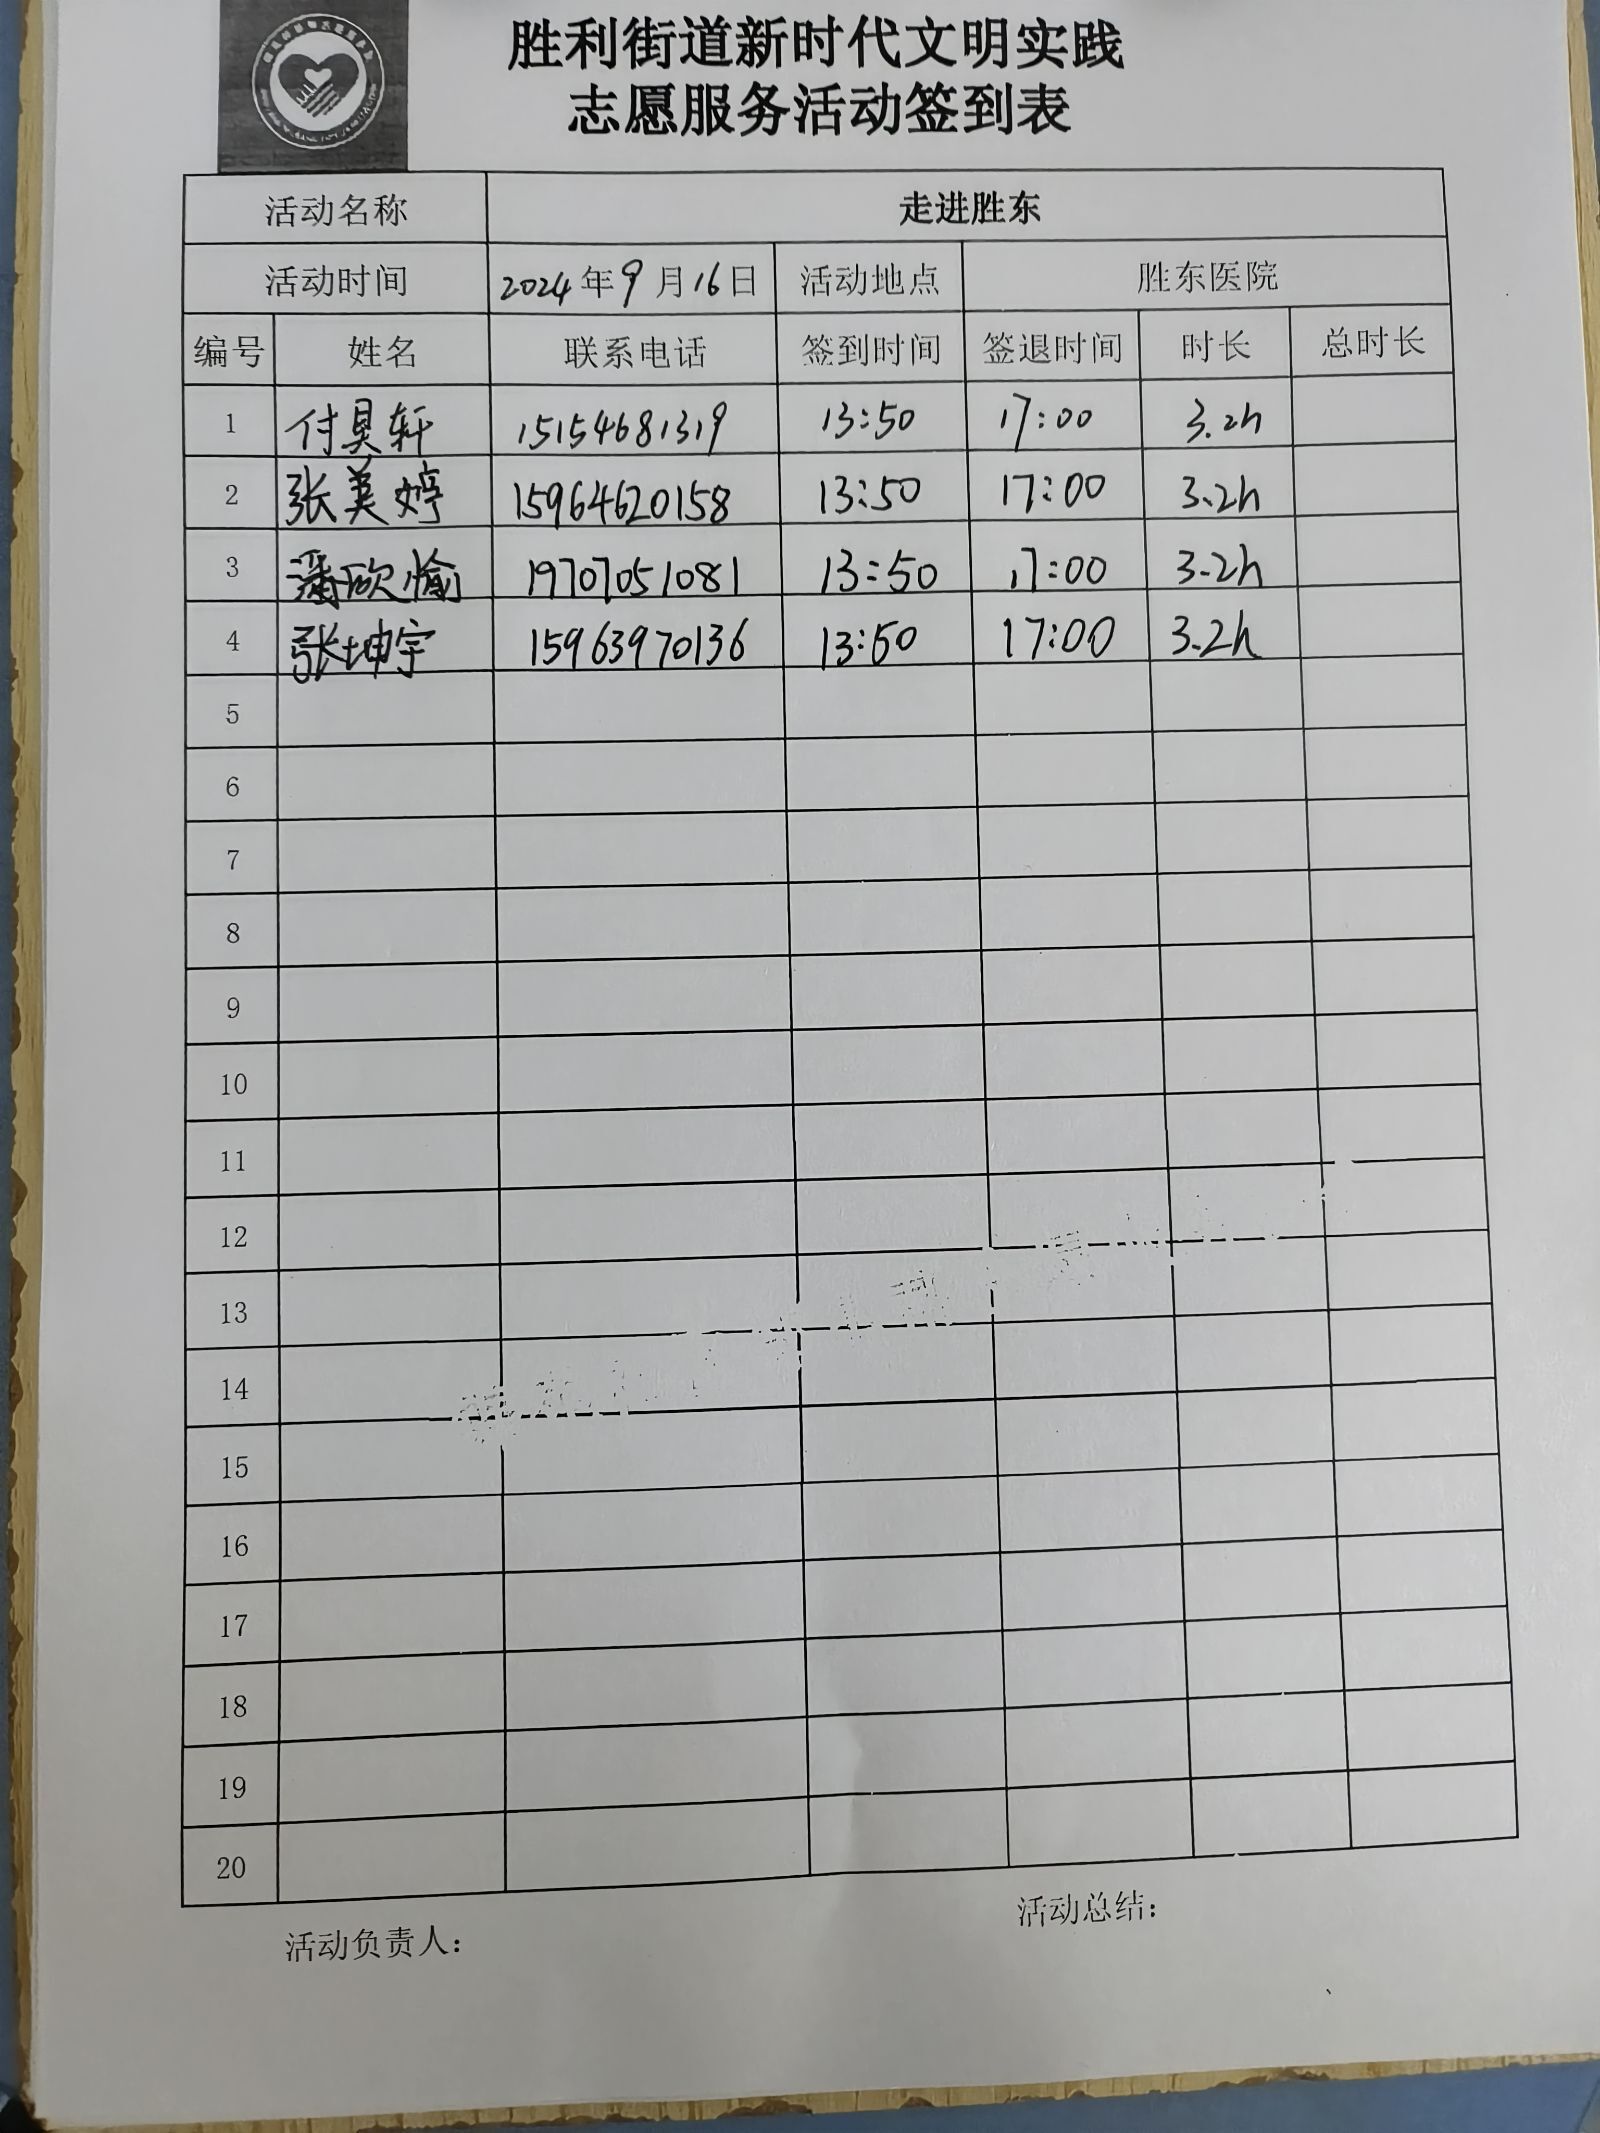 胜利街道新时代文明实践
志愿服务活动签到表
活动名称 走进胜东
活动时间 2024年9月16日 活动地点 胜东医院
编号 姓名 联系电话 签到时间 签退时间 时长 总时长
1 付昊轩 15154681319 13:50 17:00 3.2h
2 张美婷 15964620158 13:50 17:00 3.2h
3 潘欣愉 19707051081 13:50 17:00 3.2h
4 张坤宇 15963970136 13:50 17:00 3.2h
5
6
7
8
9
10
11
12
13
14
15
16
17
18
19
20
活动负责人： 活动总结：